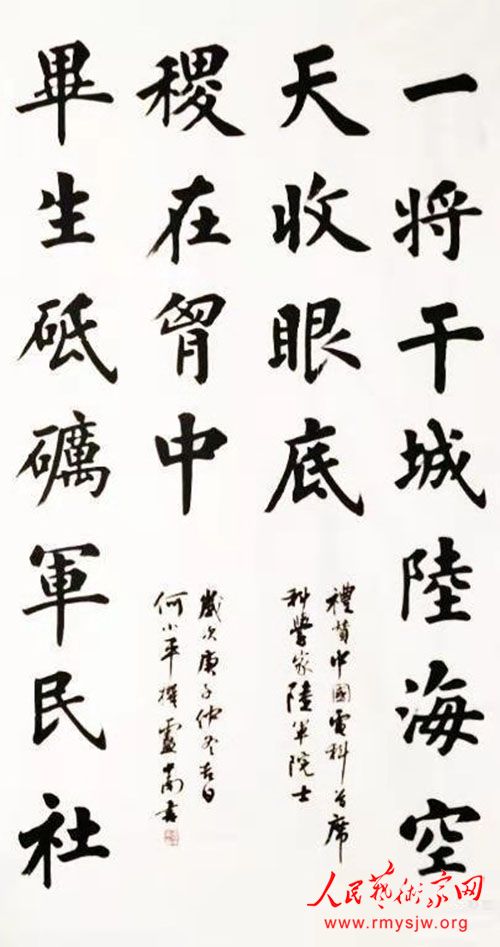 一将干城陸海空
天收眼底
禮贊中國電科首席
科學家陸軍院士
畢生砥礪軍民社
稷在胷中
歲次庚子仲冬吉日
何小平撰盧中南書
人民藝術家网
www.rmysjw.org